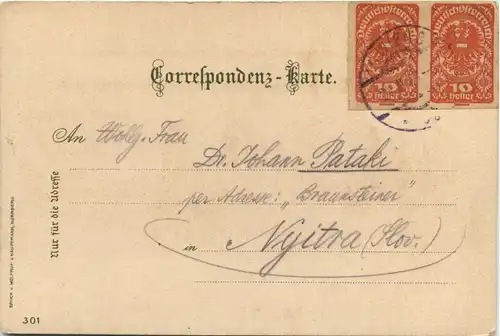 Deutschösterreich Deutschösterreich
10 10
Heller Heller
Correspondenz-Karte.
An Wolg. Frau
Dr. Johann Pataki
per Adresse: „Braunsteiner"
in Nyitra (Slov.)
Nur für die Adresse
301